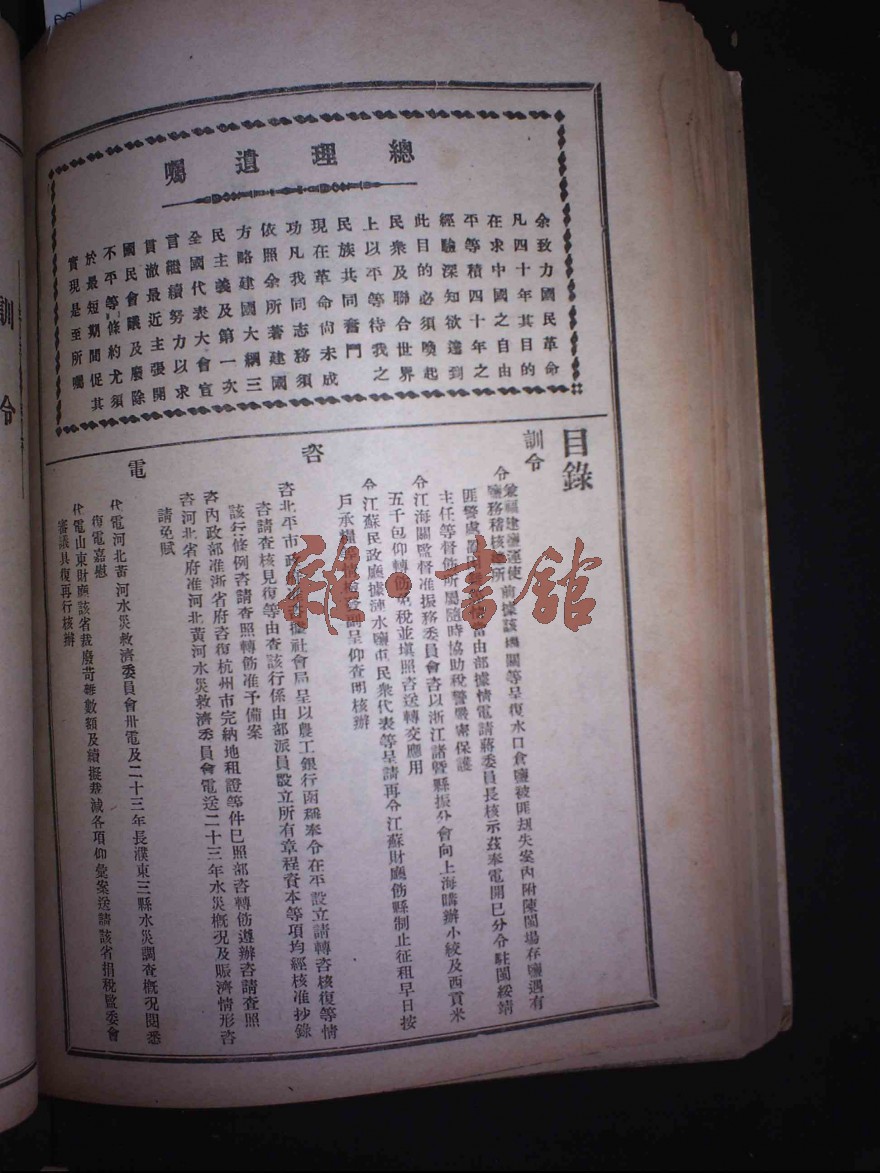 總理遺囑
余致力國民革命
凡四十年其目的
在求中國之自由
平等積四十年之
經驗深知欲達到
此目的必須喚起
民衆及聯合世界
上以平等待我之
民族共同奮鬥
現在革命尚未成
功凡我同志務須
依照余所著建國
方略建國大綱三
民主義及第一次
全國代表大會宣
言繼續努力以求
貫澈最近主張開
國民會議及廢除
不平等條約尤須
於最短期間促其
實現是至所囑
目錄
訓令
令兼福建鹽運使 鹽務稽核 所 前據該機關等呈復水口倉鹽被匪刼失案內附陳閩場存鹽遇有
匪警處置 當由部據情電請蔣委員長核示茲奉電開已分令駐閩綏靖
主任等督飭所屬隨時協助稅警嚴密保護
令江海關監督准振務委員會咨以浙江諸曁縣振分會向上海購辦小絞及西貢米
五千包仰轉飭免稅並填照咨送轉交應用
令江蘇民政廳據漣水鹽屯民衆代表等呈請再令江蘇財廳飭縣制止征租早日按
戶承糧等 呈仰查明核辦
咨
咨北平市政 據社會局呈以農工銀行函稱奉令在平設立請轉咨核復等情
咨請查核見復等由查該行係由部派員設立所有章程資本等項均經核准抄錄
該行條例咨請查照轉飭准予備案
咨內政部准浙省府咨復杭州市完納地租證等件已照部咨轉飭遵辦咨請查照
咨河北省府准河北黃河水災救濟委員會電送二十三年水災概况及賑濟情形咨
請免賦
電
代電河北黃河水災救濟委員會卅電及二十三年長濮東三縣水災調查概况閱悉
復電嘉慰
代電山東財廳該省裁廢苛雜數額及續擬裁減各項仰彙案送請該省捐稅監委會
審議具復再行核辦
訓令
雜·書館